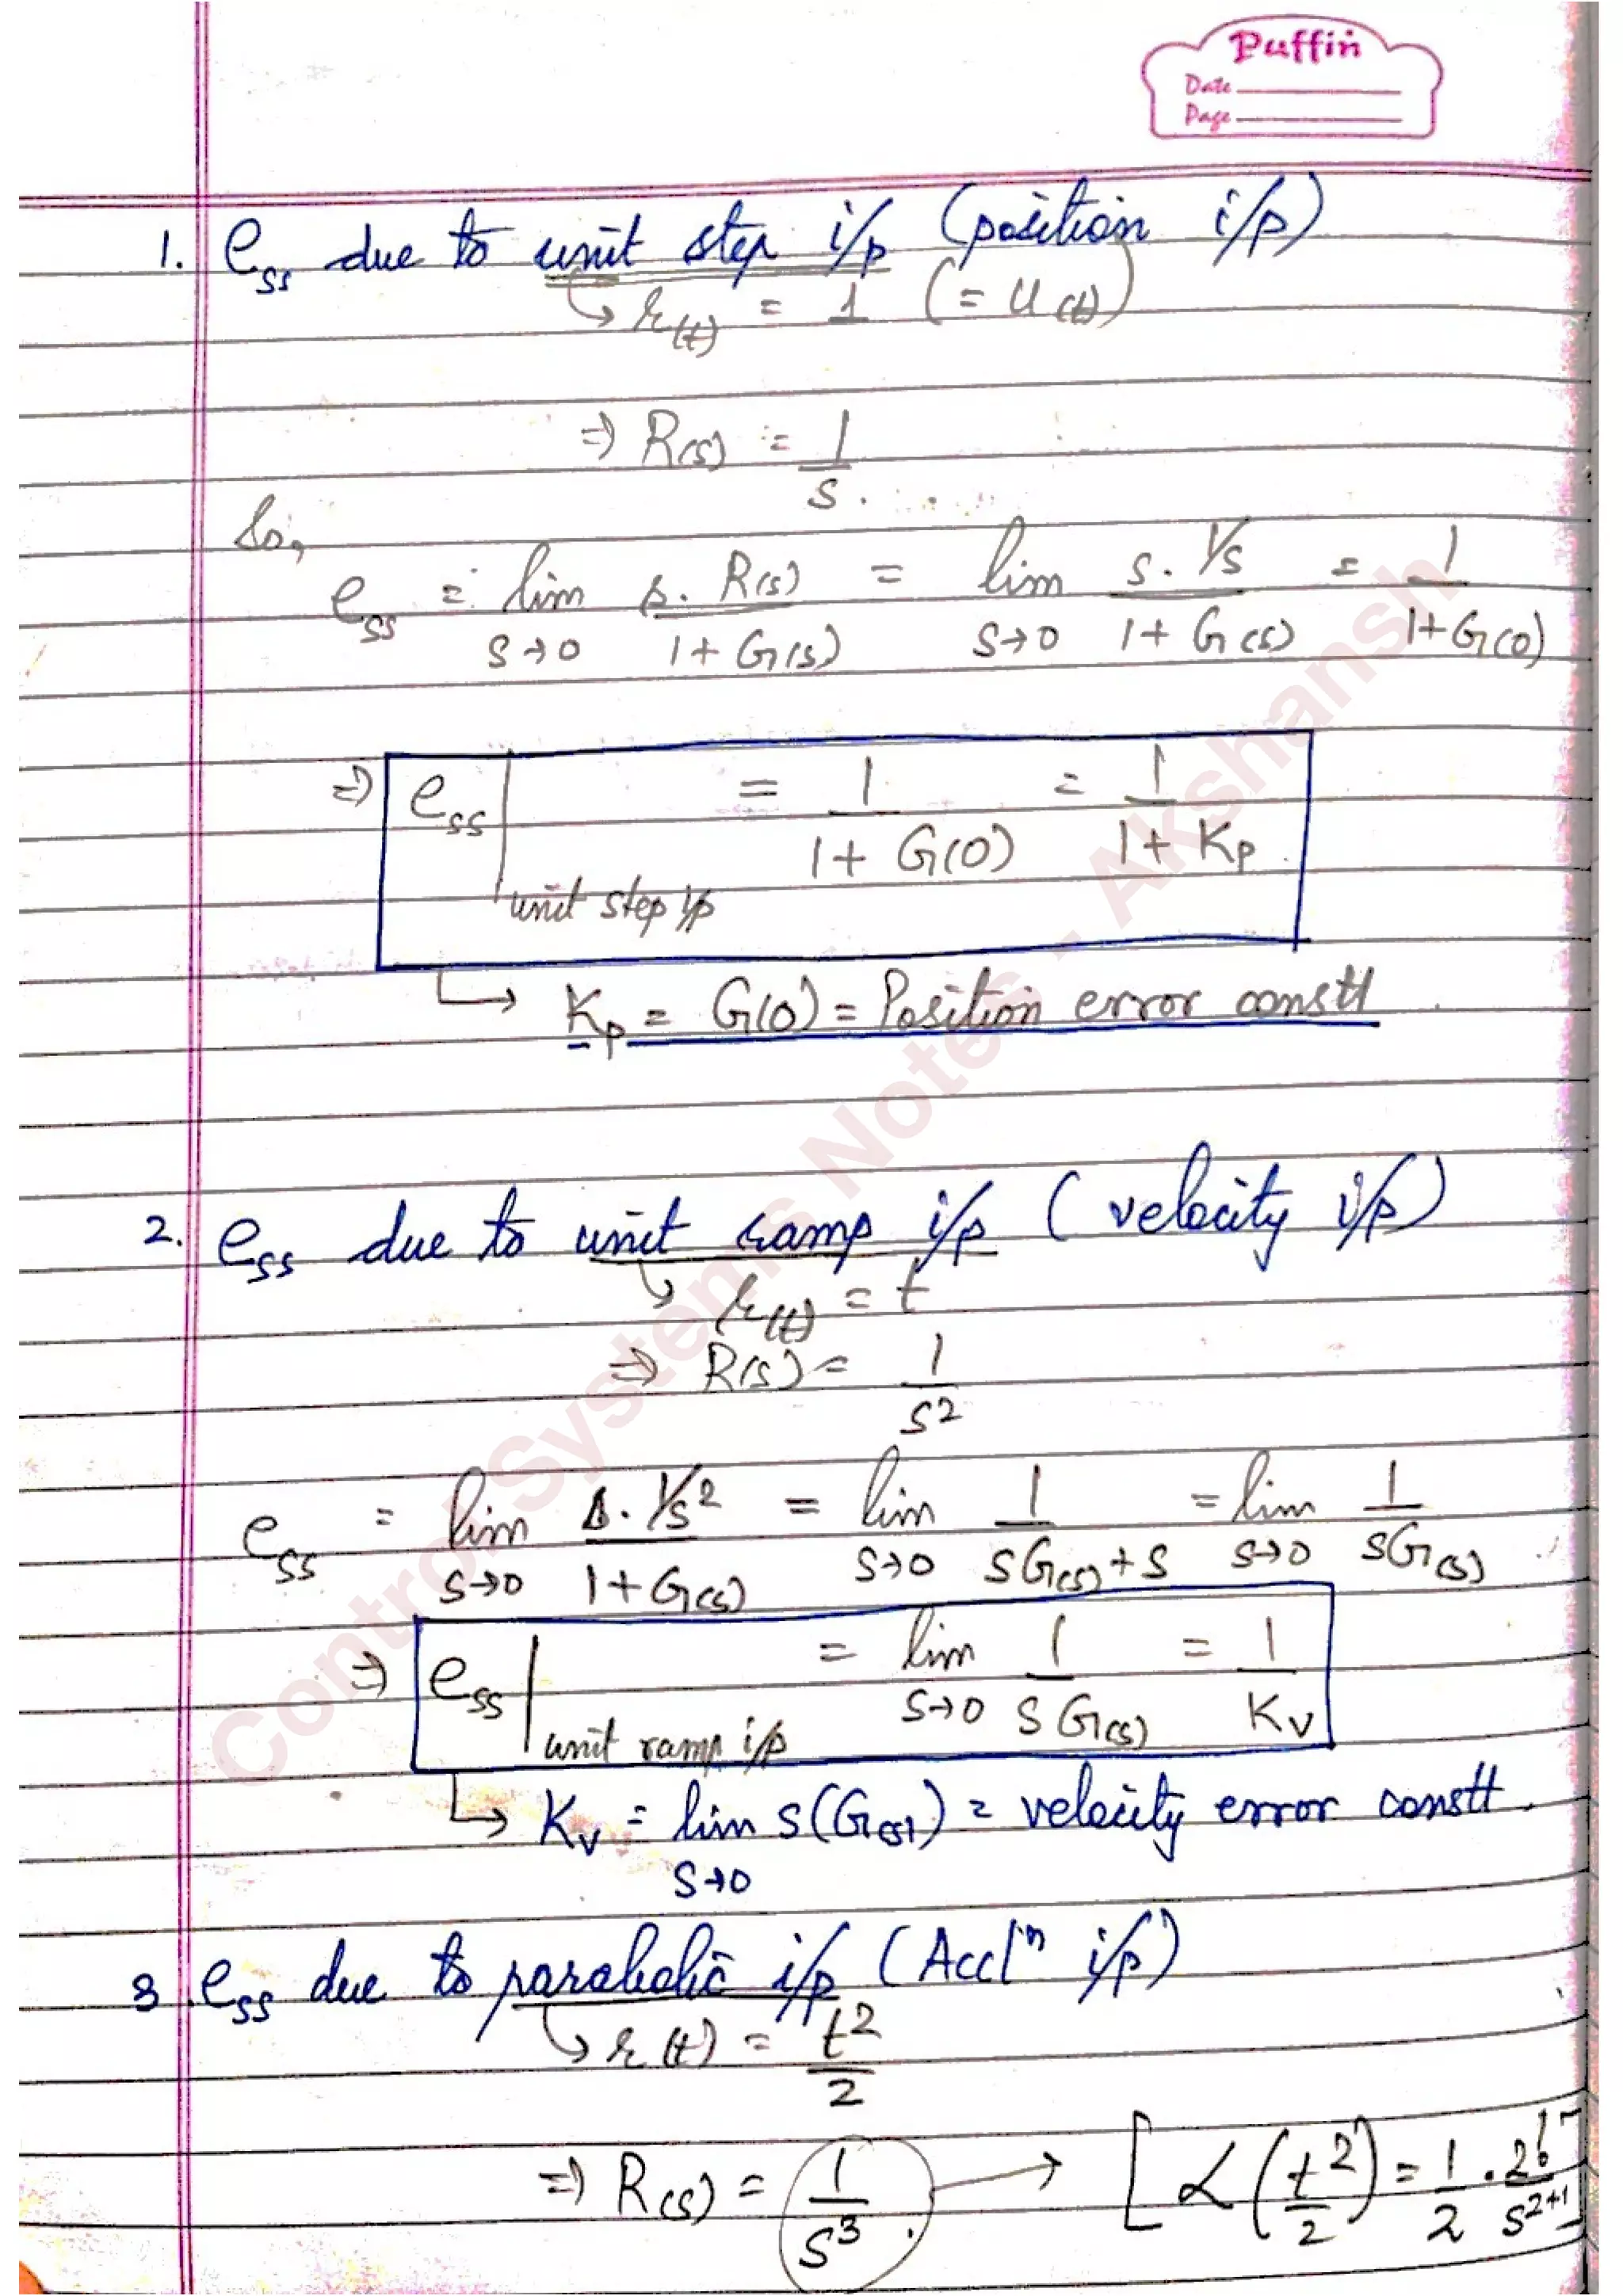 Puffin
Date
Page
1. ess due to unit step i/p (position i/p)
↳ r(t) = 1 (= u(t))
⇒ R(s) = 1/s
So,
ess = lim s→0 s. R(s)/1+G(s) = lim s→0 s. 1/s/1+G(s) = 1/1+G(0)
⇒ ess| unit step i/p = 1/1+G(0) = 1/1+Kp
↳ Kp = G(0) = Position error constt
2. ess due to unit ramp i/p (velocity i/p)
↳ r(t) = t
⇒ R(s) = 1/s²
ess = lim s→0 s. 1/s²/1+G(s) = lim s→0 1/sG(s)+s = lim s→0 1/sG(s)
⇒ ess| unit ramp i/p = lim s→0 1/sG(s) = 1/Kv
↳ Kv = lim s→0 s(G(s)) = velocity error constt.
3. ess due to parabolic i/p (Acclⁿ i/p)
↳ r(t) = t²/2
⇒ R(s) = 1/s³ → [L(t²/2) = 1/2 . 2!/s²⁺¹]
Control Systems Notes - Akshansh